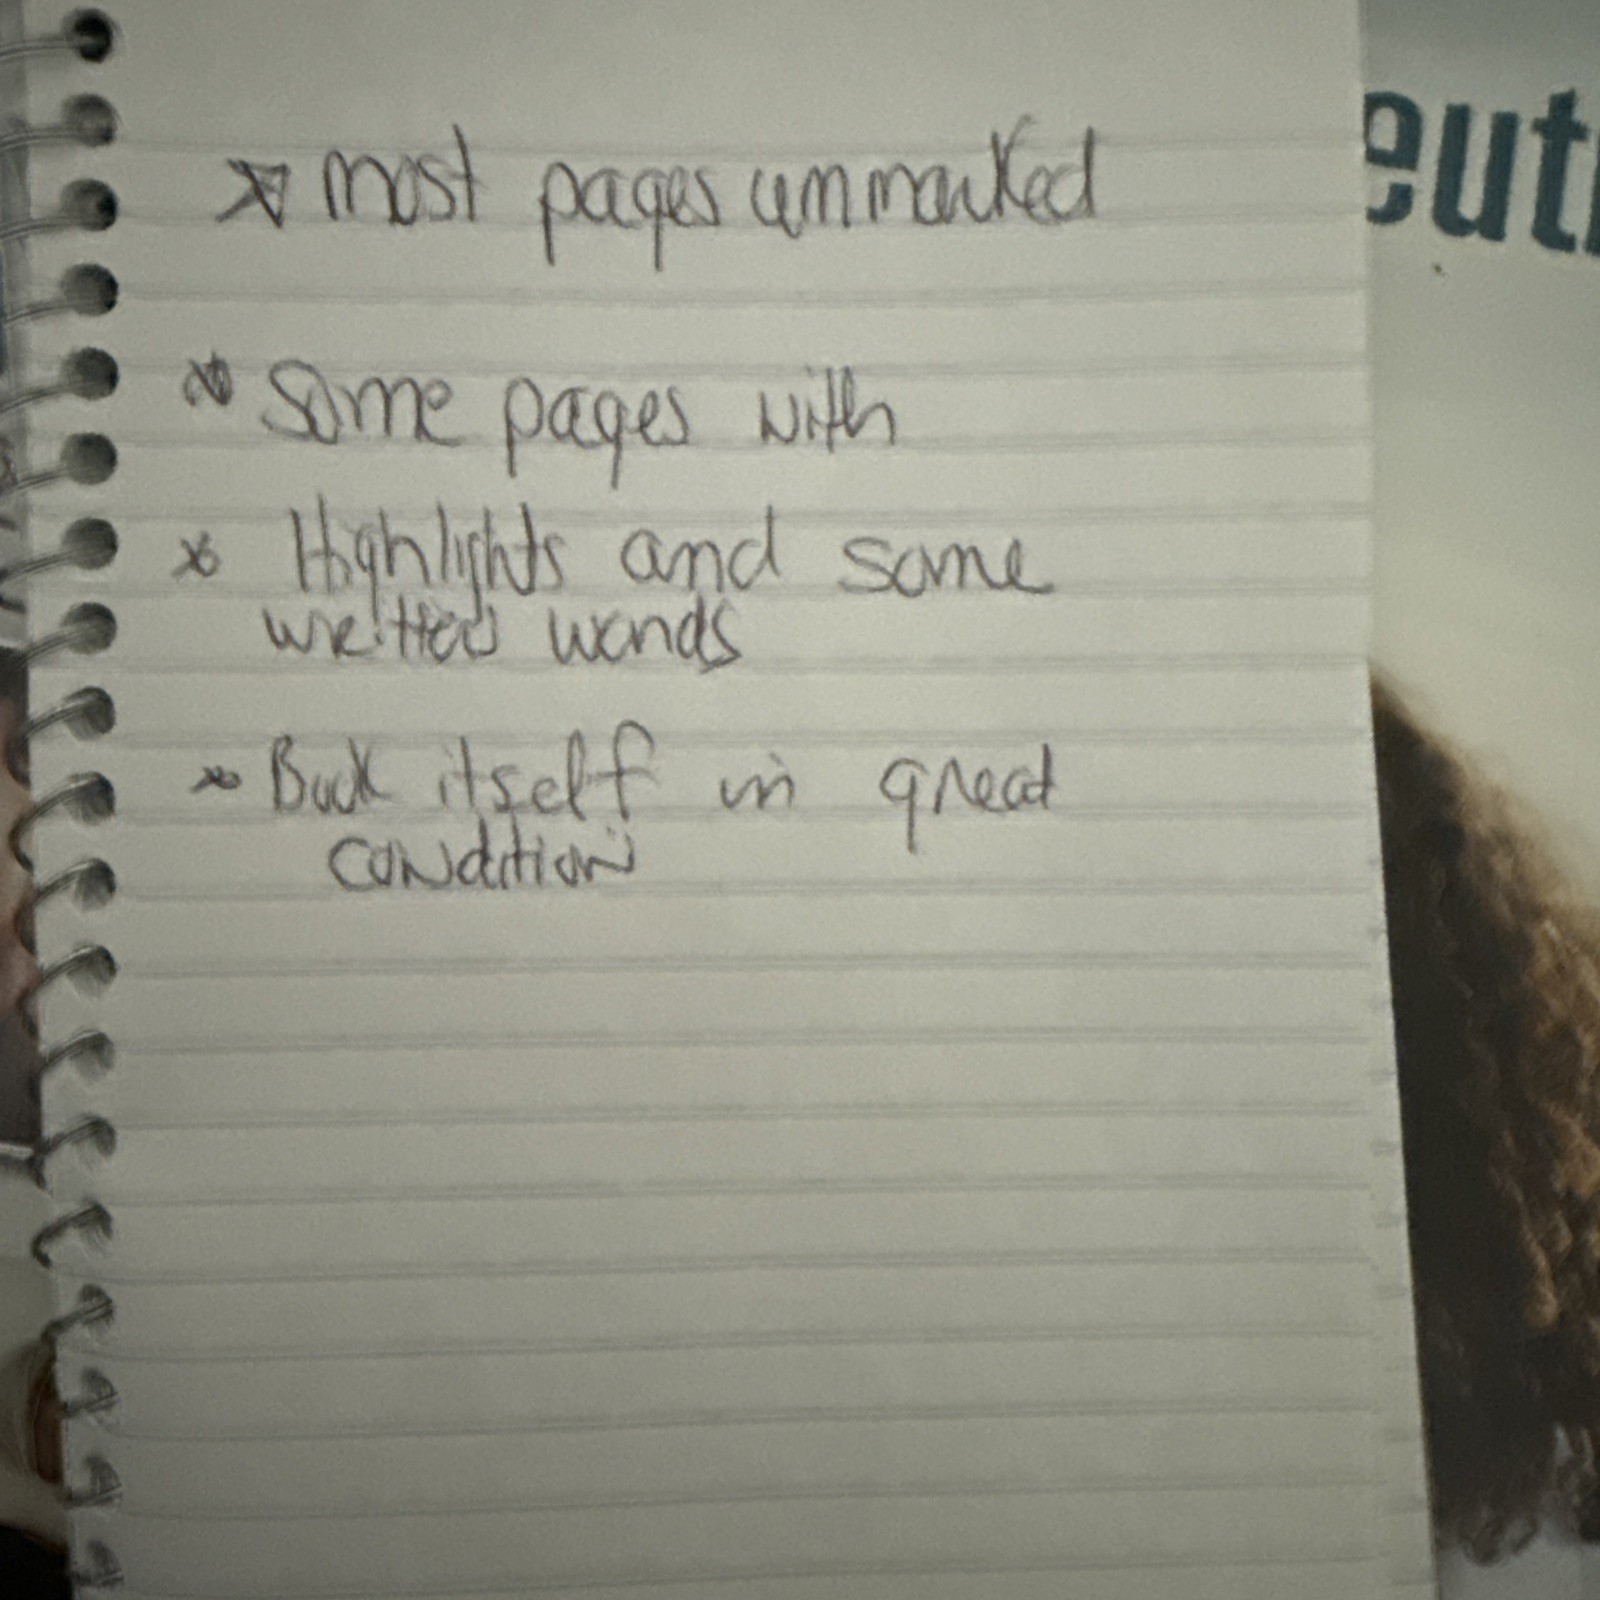 * most pages unmarked
eut
* Some pages with
* Highlights and some
written words
* Book itself in great
condition